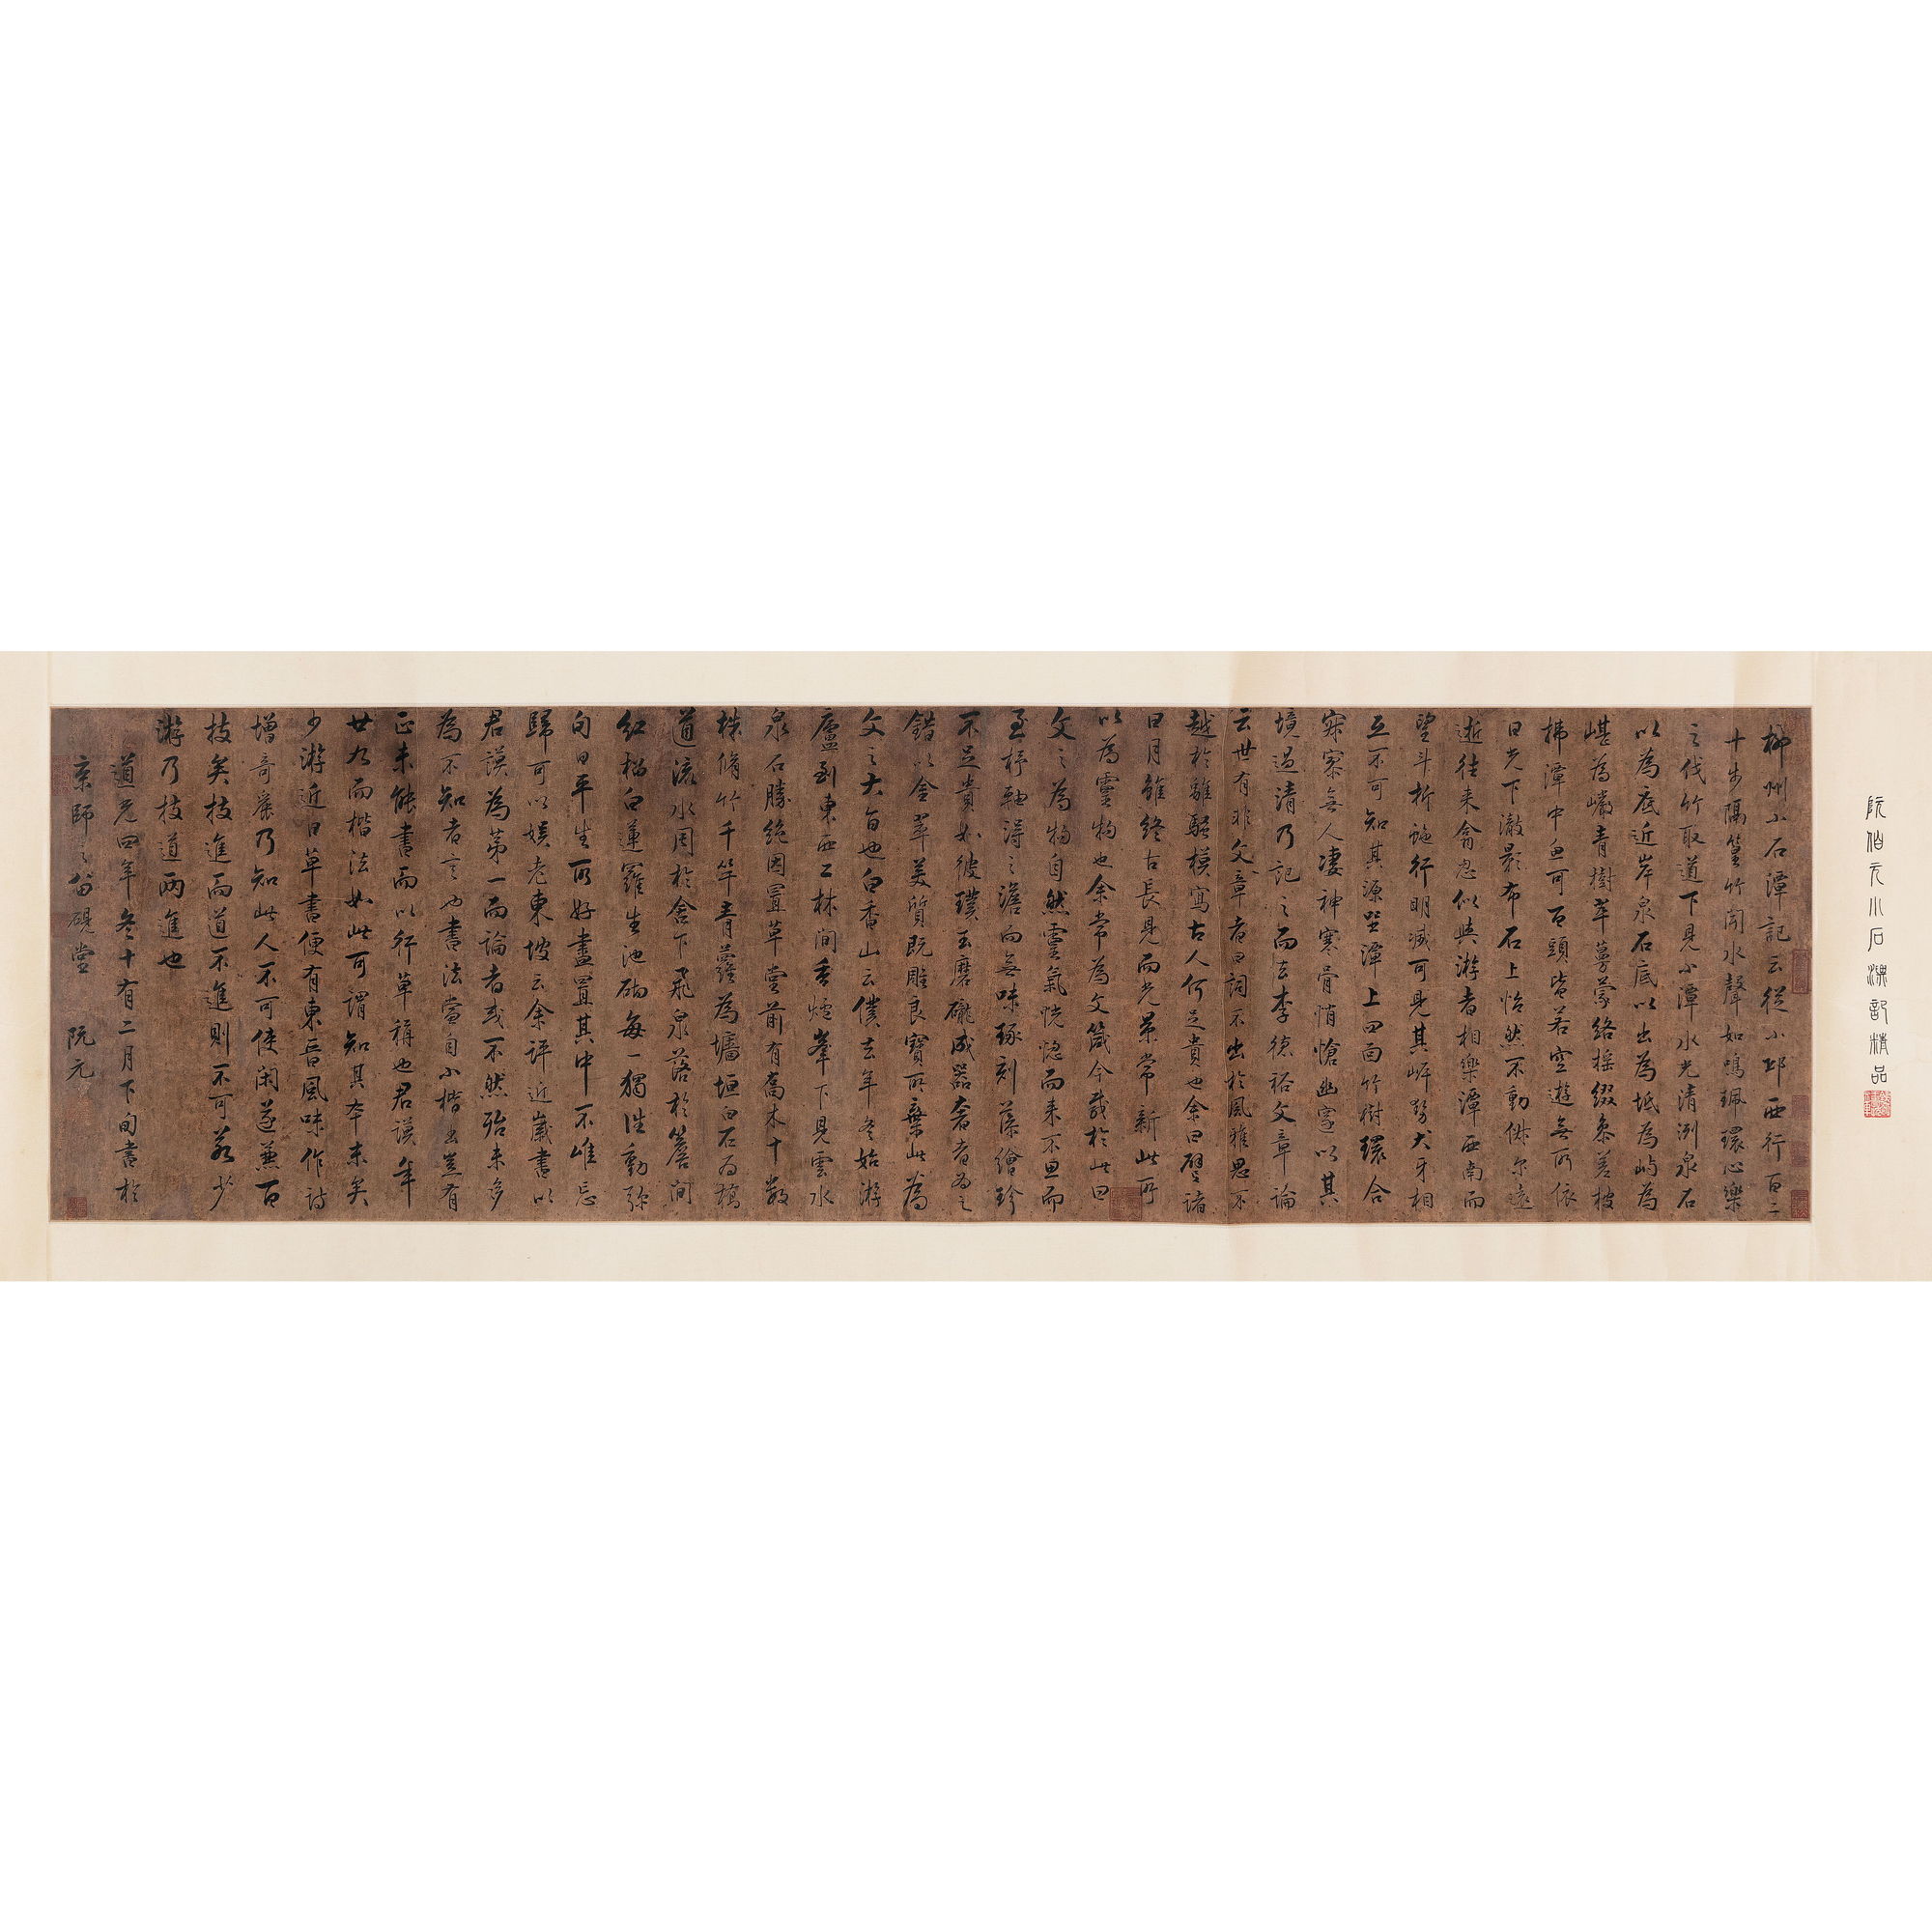 阮伯元小石潭記精品
柳州小石潭記云從小邱西行百二
十步隔篁竹聞水聲如鳴珮環心樂
之伐竹取道下見小潭水光清洌泉石
以為底近岸泉石底以出為坻為嶼為
嵁為巖青樹萃蔓蒙絡搖綴參差披
拂潭中魚可百頭皆若空遊無所依
日光下澈影布石上怡然不動俶尔遠
逝往來翕忽似與游者相樂潭西南而
望斗折蛇行明滅可見其岸勢犬牙相
互不可知其源坐潭上四面竹樹環合
寂寥無人淒神寒骨悄愴幽邃以其
境過清乃記之而去李德裕文章論
云世有非文章者曰詞不出於風雅思不
越於離騷模寫古人何足貴也余曰譬諸
日月雖終古長見而光景常新此所
以為靈物也余常為文箴今載於此曰
文之為物自然靈氣恍惚而來不思而
至杼軸得之澹而無味琢刻藻繪珍
不足貴如彼璞玉磨礲成器奢者為之
錯以金翠美質既雕良寶所棄此為
文之大旨也白香山云僕去年冬始游
廬到東西二林間香爐峯下見雲水
泉石勝絕因置草堂前有喬木十數
株脩竹千竿青蘿為墻垣白石為橋
道流水周於舍下飛泉落於簷間
紅榴白蓮羅生池砌每一獨往動弥
旬日平生所好盡置其中不唯忘
歸可以娛老東坡云余評近歲書以
君謨為第一而論者或不然殆未多
為不知者言也書法當自小楷出豈有
正未能書而以行草稱也君謨年
廿九而楷法如此可謂知其本末矣
少游近日草書便有東晉風味作詩
增奇麗乃知此人不可使閑遂兼百
技矣技進而道不進則不可若少
游乃技道兩進也
道光四年冬十有二月下旬書於
京師之節硯堂 阮元